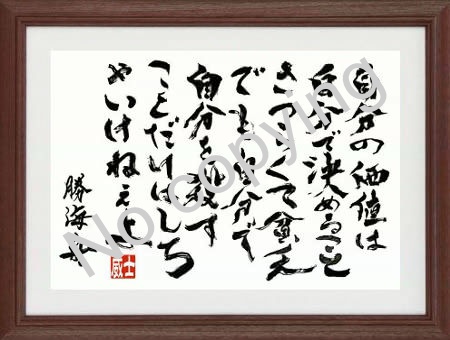 自分の価値は
自分で決めること
さつらくて貧乏
でも自分で
自分を殺す
ことだけはしち
ゃいけねぇよ
勝海舟
士威
No copying